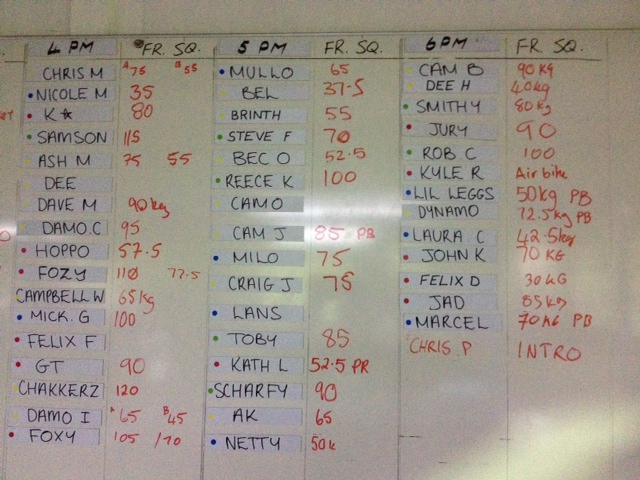 4 PM FR. SQ.
CHRIS M A75 B55
NICOLE M 35
K 80
SAMSON 115
ASH M 75 55
DEE
DAVE M 90kg
DAMO.C 95
HOPPO 57.5
FOZY 110 77.5
CAMPBELL W 65kg
MICK. G 100
FELIX F
GT 90
CHAKKERZ 120
DAMO I A65 B45
FOXY 105 /70
5 PM FR. SQ.
MULLO 65
BEL 37.5
BRINTH 55
STEVE F 70
BEC O 52.5
REECE K 100
CAMO
CAM J 85 PB
MILO 75
CRAIG J 75
LANS
TOBY 85
KATH L 52.5 PR
SCHARFY 90
AK 65
NETTY 50k
6PM FR. SQ.
CAM B 90KG
DEE H 40kg
SMITHY 80kg
JURY 90
ROB C 100
KYLE R Air bike
LIL LEGGS 50kg PB
DYNAMO 72.5kg PB
LAURA C 42.5kg
JOHN K 70 KG
FELIX D 30KG
JAD 85kg
MARCEL 70KG PB
CHRIS P INTRO